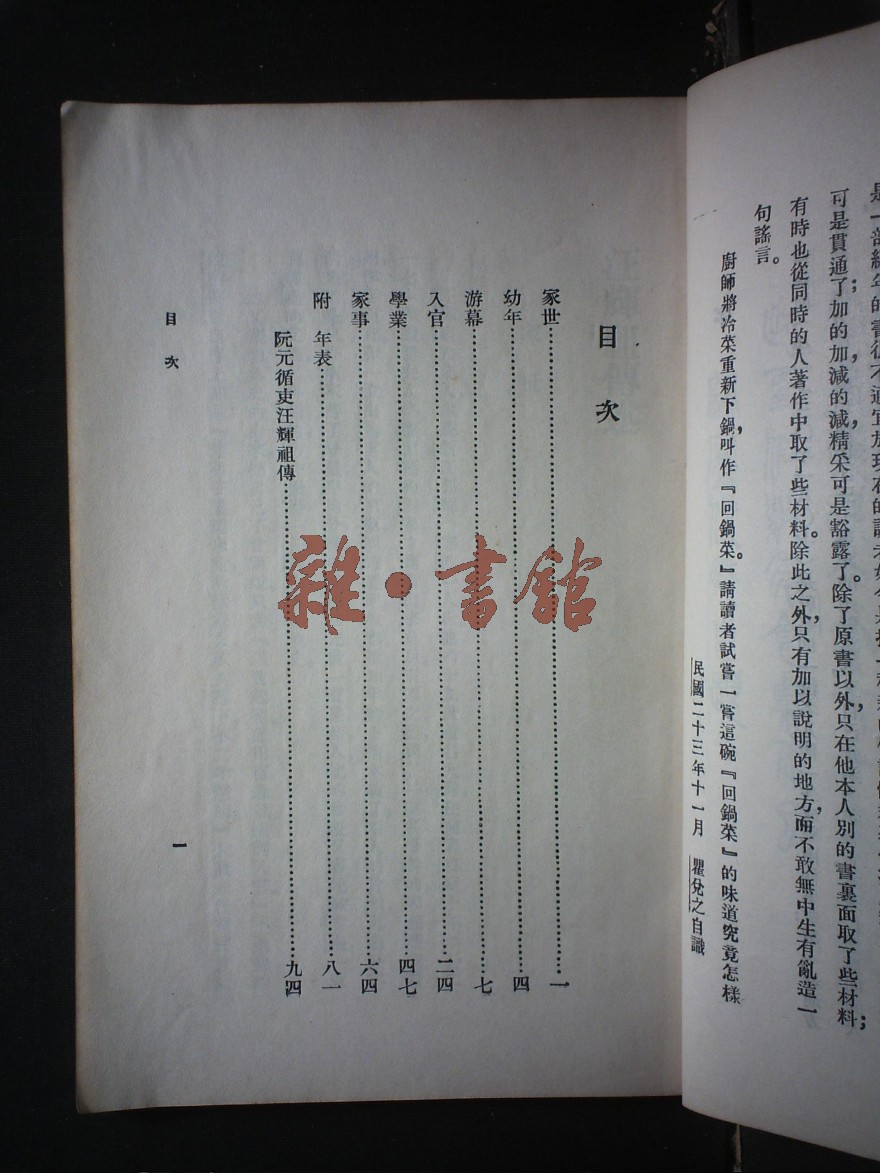 可是貫通了；加的加，減的減，精采可是豁露了。除了原書以外，只在他本人別的書裏面取了些材料；
有時也從同時的人著作中取了些材料。除此之外，只有加以說明的地方，而不敢無中生有亂造一
句謠言。
廚師將冷菜重新下鍋，叫作『回鍋菜』。請讀者試嘗一嘗這碗『回鍋菜』的味道究竟怎樣
民國二十三年十一月 瞿兌之自識
目次
家世 一
幼年 四
游幕 七
入官 二四
學業 四七
家事 六四
附 年表 八一
阮元循吏汪輝祖傳 九四
目次
一
雜·書館